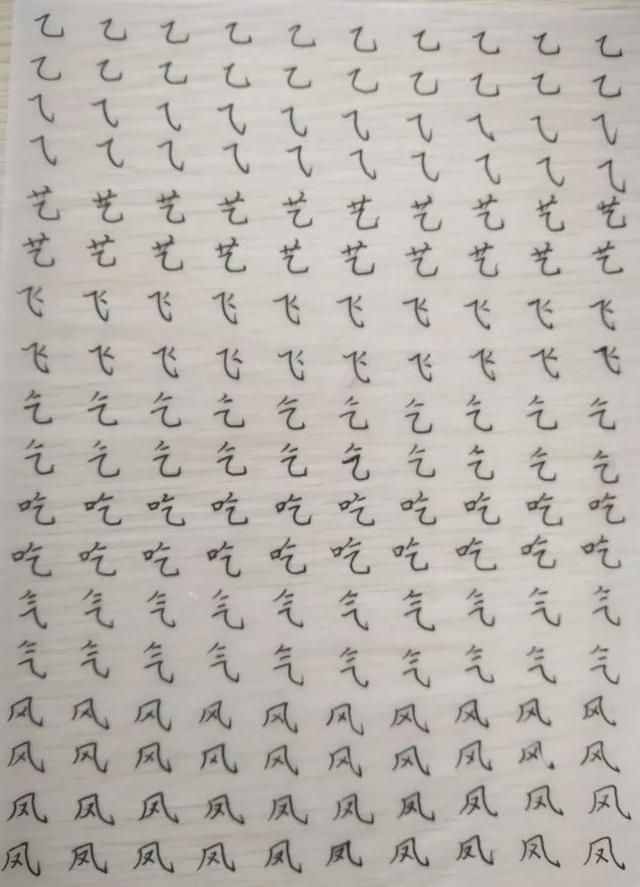 乙乙乙乙乙乙乙乙乙乙
乙乙乙乙乙乙乙乙乙乙
⺄⺄⺄⺄⺄⺄⺄⺄⺄⺄
⺄⺄⺄⺄⺄⺄⺄⺄⺄⺄
艺艺艺艺艺艺艺艺艺艺
艺艺艺艺艺艺艺艺艺艺
飞飞飞飞飞飞飞飞飞飞
飞飞飞飞飞飞飞飞飞飞
乞乞乞乞乞乞乞乞乞乞
乞乞乞乞乞乞乞乞乞乞
吃吃吃吃吃吃吃吃吃吃
吃吃吃吃吃吃吃吃吃吃
气气气气气气气气气气
气气气气气气气气气气
风风风风风风风风风风
风风风风风风风风风风
凤凤凤凤凤凤凤凤凤凤
凤凤凤凤凤凤凤凤凤凤